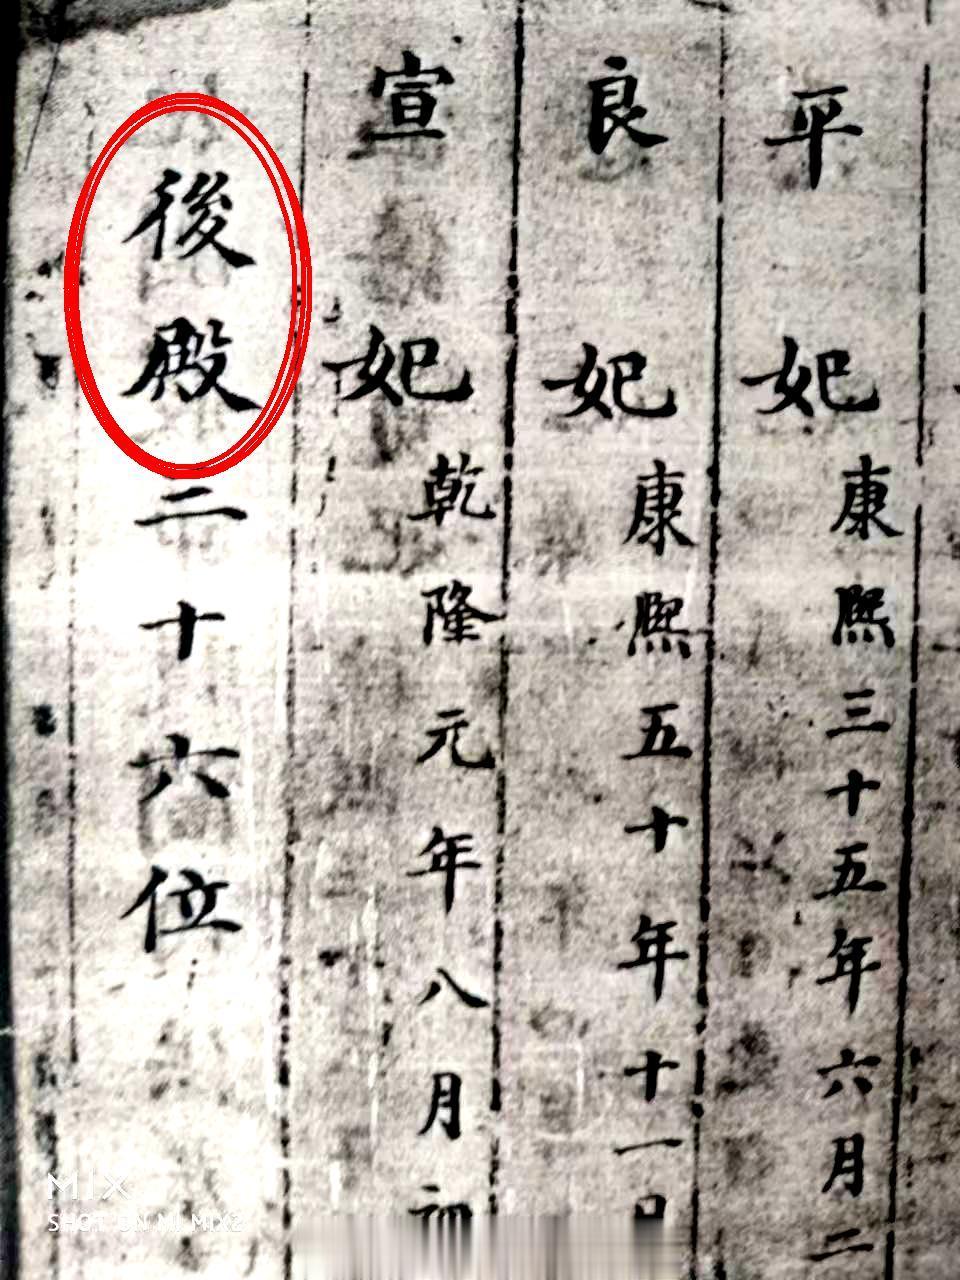 平妃康熙三十五年六月二
良妃康熙五十年十一
宣妃乾隆元年八月初
後殿二十六位
SHOT ON MI MIX2